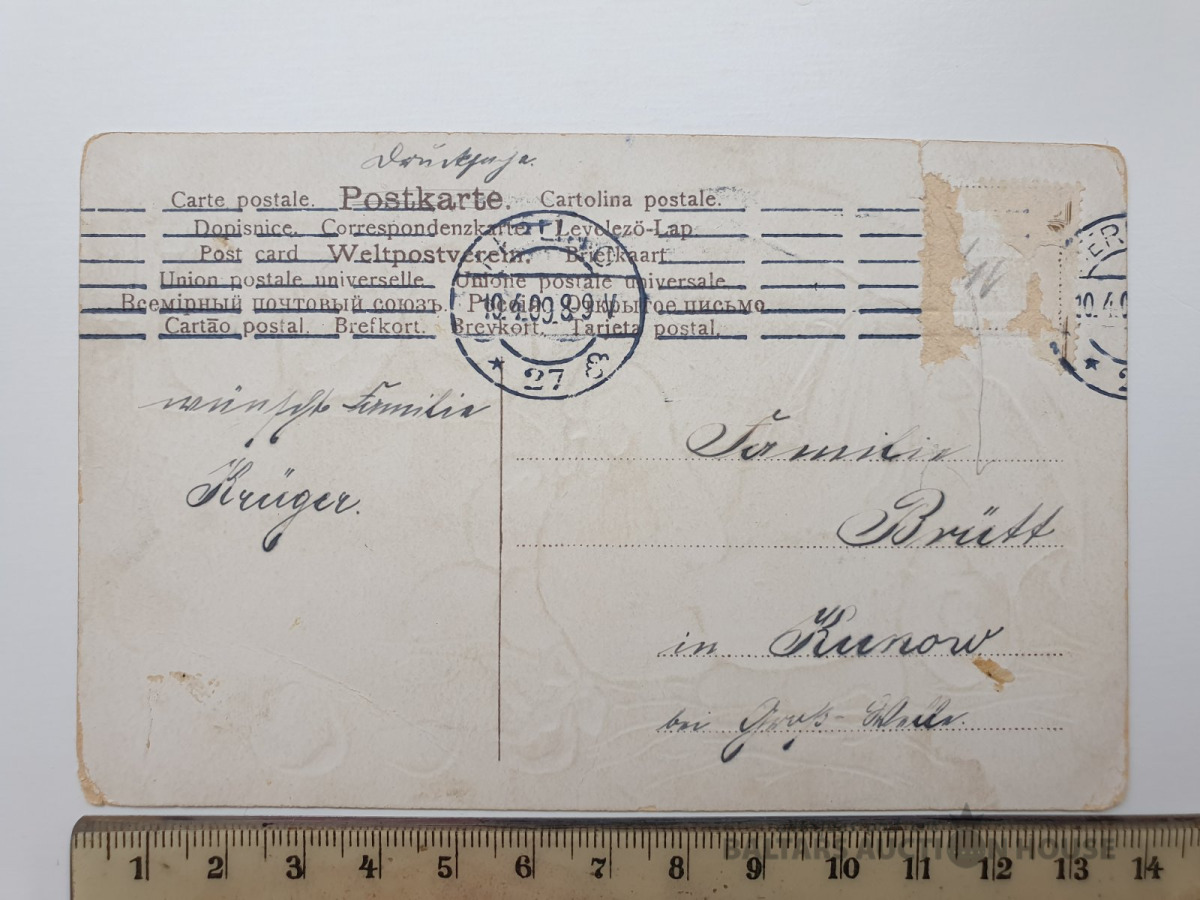 Drucksache.
Carte postale. Postkarte. Cartolina postale.
Dopisnice. Correspondenzkarte. Levelező-Lap.
Post card Weltpostverein. Briefkaart.
Union postale universelle. Unione postale universale.
Всемірный почтовый союзъ. Россія. Открытое письмо
Cartão postal. Brefkort. Brevkort. Tarjeta postal.
10.4.09.8-9V
* 27
ER
10.4.0
* 2
wünscht Familie
Krüger.
Familie
Brütt
in Kunow
bei Groß-Welle.
1 2 3 4 5 6 7 8 9 10 11 12 13 14
BALTARS AUCTION HOUSE